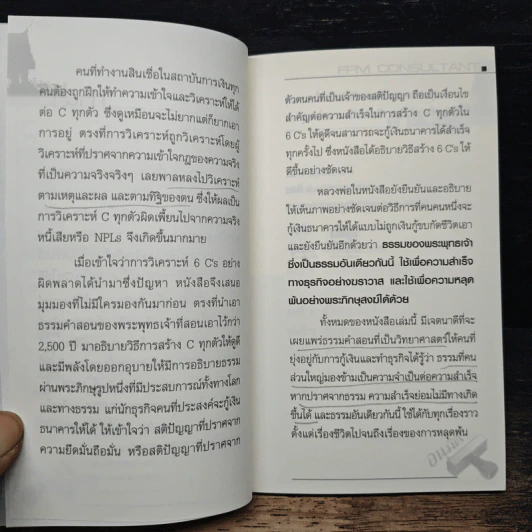 คนที่ทำงานสินเชื่อในสถาบันการเงินทุก
คนต้องถูกฝึกให้ทำความเข้าใจและวิเคราะห์ให้ได้
ต่อ C ทุกตัว ซึ่งดูเหมือนจะไม่ยากแต่ก็ยากเอา
การอยู่ ตรงที่การวิเคราะห์ถูกวิเคราะห์โดยผู้
วิเคราะห์ที่ปราศจากความเข้าใจกฎของความจริง
ที่เป็นความจริงจริงๆ เลยพาลหลงไปวิเคราะห์
ตามเหตุและผล และตามทิฐิของตน ซึ่งให้ผลเป็น
การวิเคราะห์ C ทุกตัวผิดเพี้ยนไปจากความจริง
หนี้เสียหรือ NPLs จึงเกิดขึ้นมากมาย
เมื่อเข้าใจว่าการวิเคราะห์ 6 C's อย่าง
ผิดพลาดได้นำมาซึ่งปัญหา หนังสือจึงเสนอ
มุมมองที่ไม่มีใครมองกันมาก่อน ตรงที่นำเอา
ธรรมคำสอนของพระพุทธเจ้าที่สอนเอาไว้กว่า
2,500 ปี มาอธิบายวิธีการสร้าง C ทุกตัวให้ดูดี
และมีพลังโดยออกอุบายให้มีการอธิบายธรรม
ผ่านพระภิกษุรูปหนึ่งที่มีประสบการณ์ทั้งทางโลก
และทางธรรม แก่นักธุรกิจคนที่ประสงค์จะกู้เงิน
ธนาคารให้ได้ ให้เข้าใจว่า สติปัญญาที่ปราศจาก
ความยึดมั่นถือมั่น หรือสติปัญญาที่ปราศจาก
FPM CONSULTANT
ตัวตนคนที่เป็นเจ้าของสติปัญญา ถือเป็นเงื่อนไข
สำคัญต่อความสำเร็จในการสร้าง C ทุกตัวใน
6 C's ให้ดูดีจนสามารถจะกู้เงินธนาคารได้สำเร็จ
ทุกครั้งไป ซึ่งหนังสือได้อธิบายวิธีสร้าง 6 C's ให้
ดีขึ้นอย่างชัดเจน
หลวงพ่อในหนังสือยังยืนยันและอธิบาย
ให้เห็นภาพอย่างชัดเจนต่อวิธีการที่คนคนหนึ่งจะ
กู้เงินธนาคารให้ได้แบบไม่ถูกเงินกู้ขบกัดชีวิตเอา
และยังยืนยันอีกด้วยว่า ธรรมของพระพุทธเจ้า
ซึ่งเป็นธรรมอันเดียวกันนี้ ใช้เพื่อความสำเร็จ
ทางธุรกิจอย่างฆราวาส และใช้เพื่อความหลุด
พ้นอย่างพระภิกษุสงฆ์ได้ด้วย
ทั้งหมดของหนังสือเล่มนี้ มีเจตนาที่จะ
เผยแพร่ธรรมคำสอนที่เป็นวิทยาศาสตร์ให้คนที่
ยุ่งอยู่กับการกู้เงินและทำธุรกิจได้รู้ว่า ธรรมที่คน
ส่วนใหญ่มองข้ามเป็นความจำเป็นต่อความสำเร็จ
หากปราศจากธรรม ความสำเร็จย่อมไม่มีทางเกิด
ขึ้นได้ และธรรมอันเดียวกันนี้ ใช้ได้กับทุกเรื่องราว
ตั้งแต่เรื่องชีวิตไปจนถึงเรื่องของการหลุดพ้น